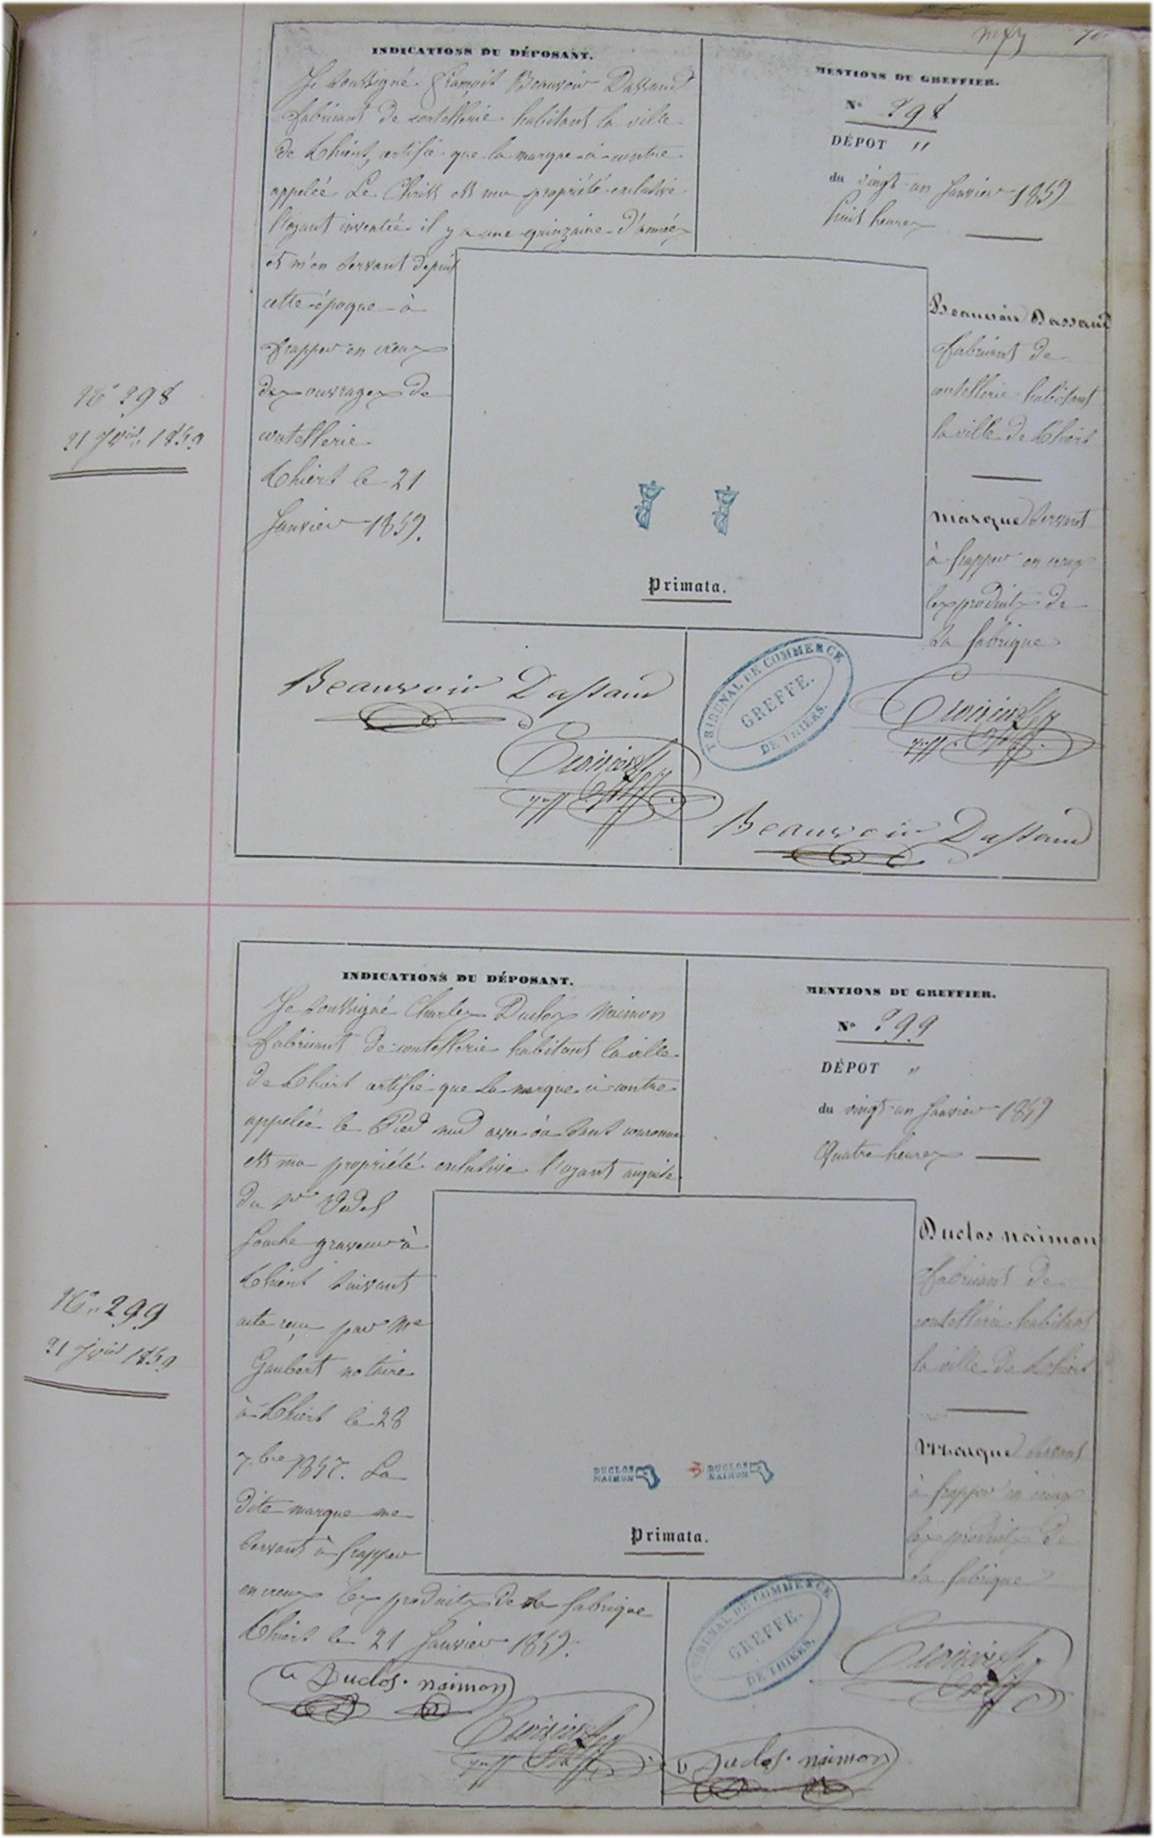 N° 298
21 Jvier 1859
INDICATIONS DU DÉPOSANT.
Je soussigné Beauvoir Dassaud
fabricant de coutellerie habitant la ville
de Thiers, certifie que la marque ci contre
appelée Le Christ est ma propriété exclusive
l'ayant inventée il y a une quinzaine d'années
et m'en servant depuis
cette époque à
frapper en creux
des ouvrages de
coutellerie
Thiers le 21
Janvier 1859.
Beauvoir Dassaud
MENTIONS DU GREFFIER.
N° 298
DÉPOT "
du vingt un Janvier 1859
huit heures
Beauvoir Dassaud
fabricant de
coutellerie habitant
la ville de Thiers
Marque servant
à frapper en creux
les produits de
sa fabrique
Primata.
TRIBUNAL DE COMMERCE
GREFFE.
DE THIERS.
Beauvoir Dassaud
N° 299
21 jvier 1859
INDICATIONS DU DÉPOSANT.
Je soussigné Charles Duclos Naimon
fabricant de coutellerie habitant la ville
de Thiers certifie que la marque ci contre
appelée le Pied nud avec ou sant couronne
est ma propriété exclusive l'ayant acquise
du Sr
graveur à
Thiers suivant
acte reçu par Me
Gaubert notaire
à Thiers le 28
7bre 1857. La
dite marque me
servant à frapper
en creux les produits de ma fabrique
Thiers le 21 Janvier 1859.
Duclos. naimon
MENTIONS DU GREFFIER.
N° 299
DÉPOT "
du vingt-un Janvier 1859
Quatre heures
Duclos naimon
fabricant de
coutellerie habitant
la ville de Thiers
Marque servant
à frapper en creux
les produits de
sa fabrique
DUCLOS
NAIMON
DUCLOS
NAIMON
Primata.
TRIBUNAL DE COMMERCE
GREFFE.
DE THIERS.
Duclos. naimon